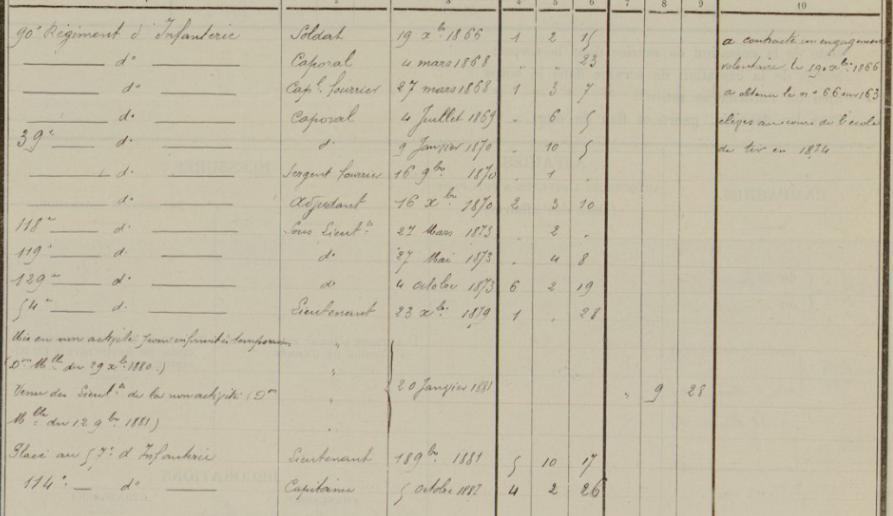 90e Régiment d'Infanterie Soldat 19 xbre 1866 1 2 15 a contracté un engagement
do Caporal 4 mars 1868 . . 23 volontaire le 19 xbre 1866
do Capl fourrier 27 mars 1868 1 3 7 a obtenu le no 66 sur 163
do Caporal 4 Juillet 1869 . 6 5 élèves au cours de l'école
39e do do 9 Janvier 1870 . 10 5 de tir en 1874
do Sergent fourrier 16 9bre 1870 . 1 .
do Adjudant 16 xbre 1870 2 3 10
118e do Sous Lieutnt 27 Mars 1873 . 2 .
119e do do 27 Mai 1873 . 4 8
129e do do 4 octobre 1873 6 2 19
54e do Lieutenant 23 xbre 1879 1 . 28
Mis en non activité pour infirmités temporaires "
(Don Mlle du 29 xbre 1880.) "
Venu des Lieutnts de la non activité (Don " 20 Janvier 1881 " 9 28
Mlle du 12 9bre 1881) "
Placé au 57e d'Infanterie Lieutenant 18 9bre 1881 5 10 17
114e do Capitaine 5 octobre 1887 4 2 26
4 5 6 7 8 9 10